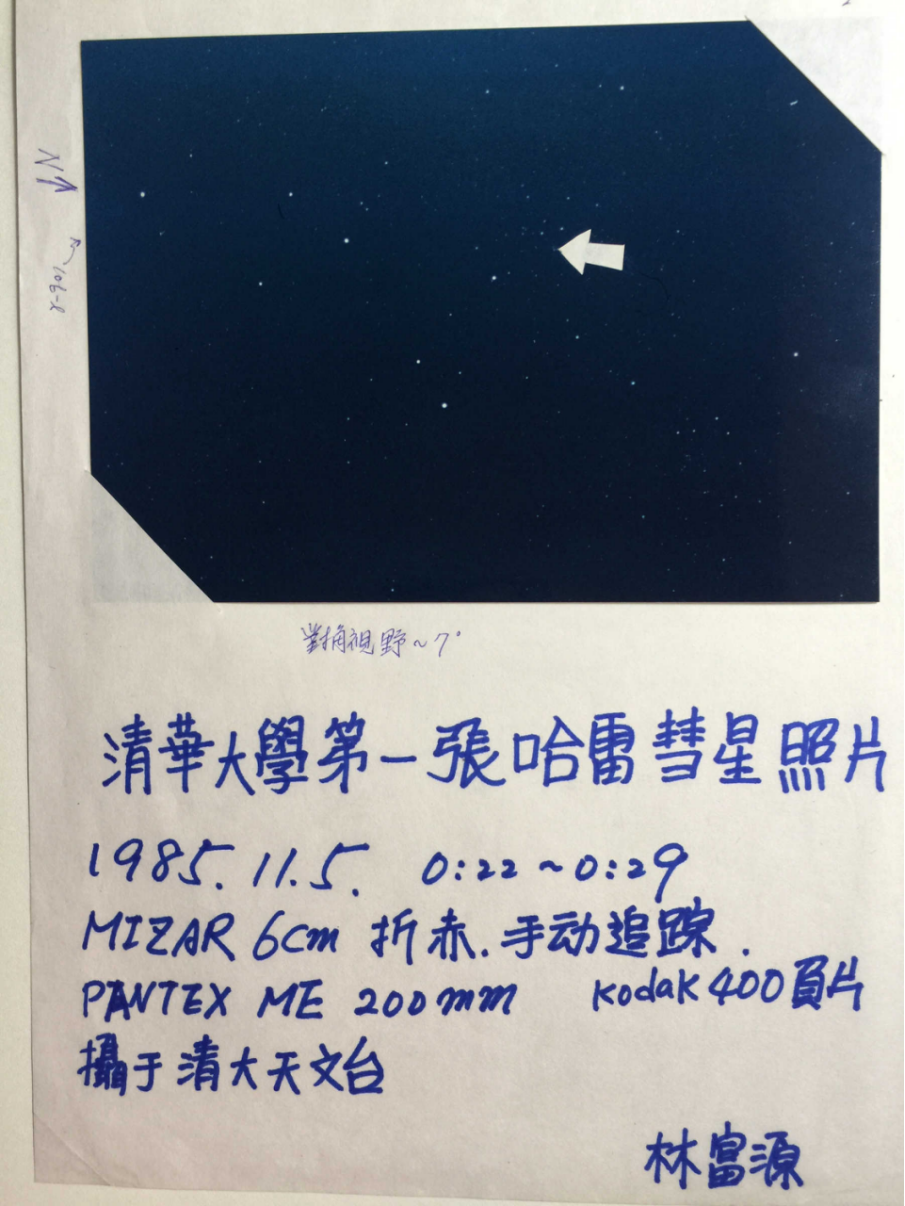 N
對角視野~7°
清華大學第一張哈雷彗星照片
1985.11.5. 0:22~0:29
MIZAR 6cm 折赤.手动追踪.
PANTEX ME 200mm Kodak 400負片
攝于清大天文台
林富源